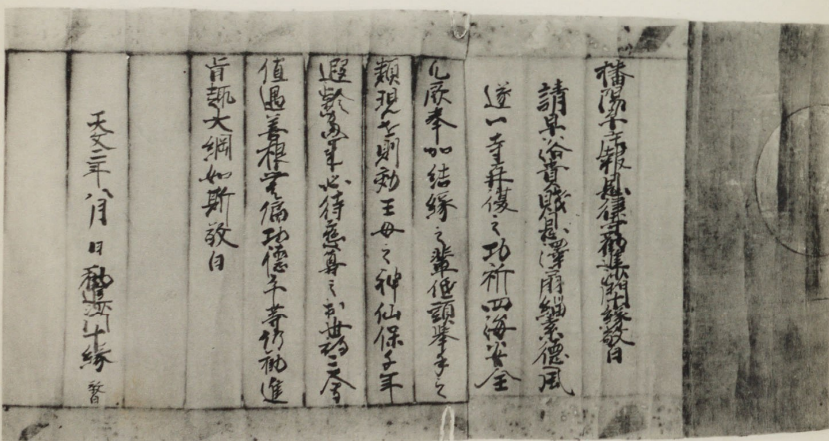 播陽 報恩律寺勧進沙門十縁敬白
請早浴貴賤恩沢扇緇素徳風
遂一寺再復之功祈四海安全
凡厥奉加結縁之輩低頭挙手之
類現世則効王母之神仙保千年
遐齢 必待慈尊之出世
値遇善根無偏功徳平等 勧進
旨趣大綱如斯敬白
天文二年八月日 勧進沙門十縁 敬白